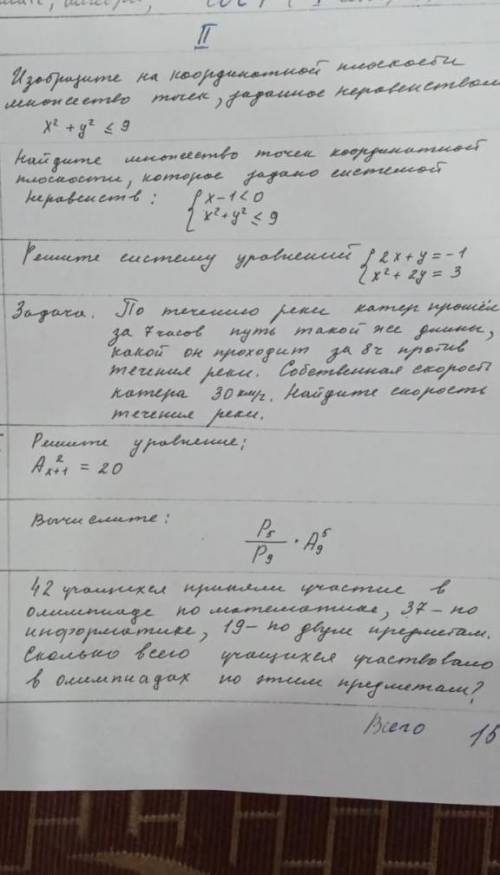 II
Изобразите на координатной плоскости
множество точек, заданное неравенством
x² + y² ≤ 9
Найдите множество точек координатной
плоскости, которое задано системой
неравенств: { x-1<0
x²+y² ≤ 9
Решите систему уравнений { 2x+y=-1
x²+2y=3
Задача. По течению реки катер прошёл
за 7 часов путь такой же длины,
какой он проходит за 8ч против
течения реки. Собственная скорость
катера 30 км/ч. Найдите скорость
течения реки.
Решите уравнение;
A²ₓ₊₁ = 20
Вычислите: P₅/P₉ · A₉⁵
42 учащихся приняли участие в
олимпиаде по математике, 37- по
информатике, 19- по двум предметам.
Сколько всего учащихся участвовало
в олимпиадах по этим предметам?
Всего 15